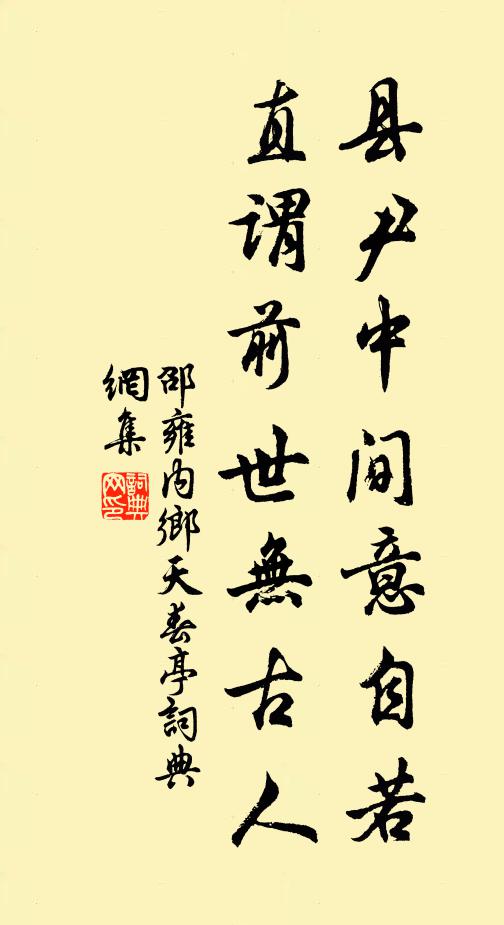 县尹中间意自若
直谓前世無古人
邵雍内鄉天春亭詞典
網集
詞典
网印